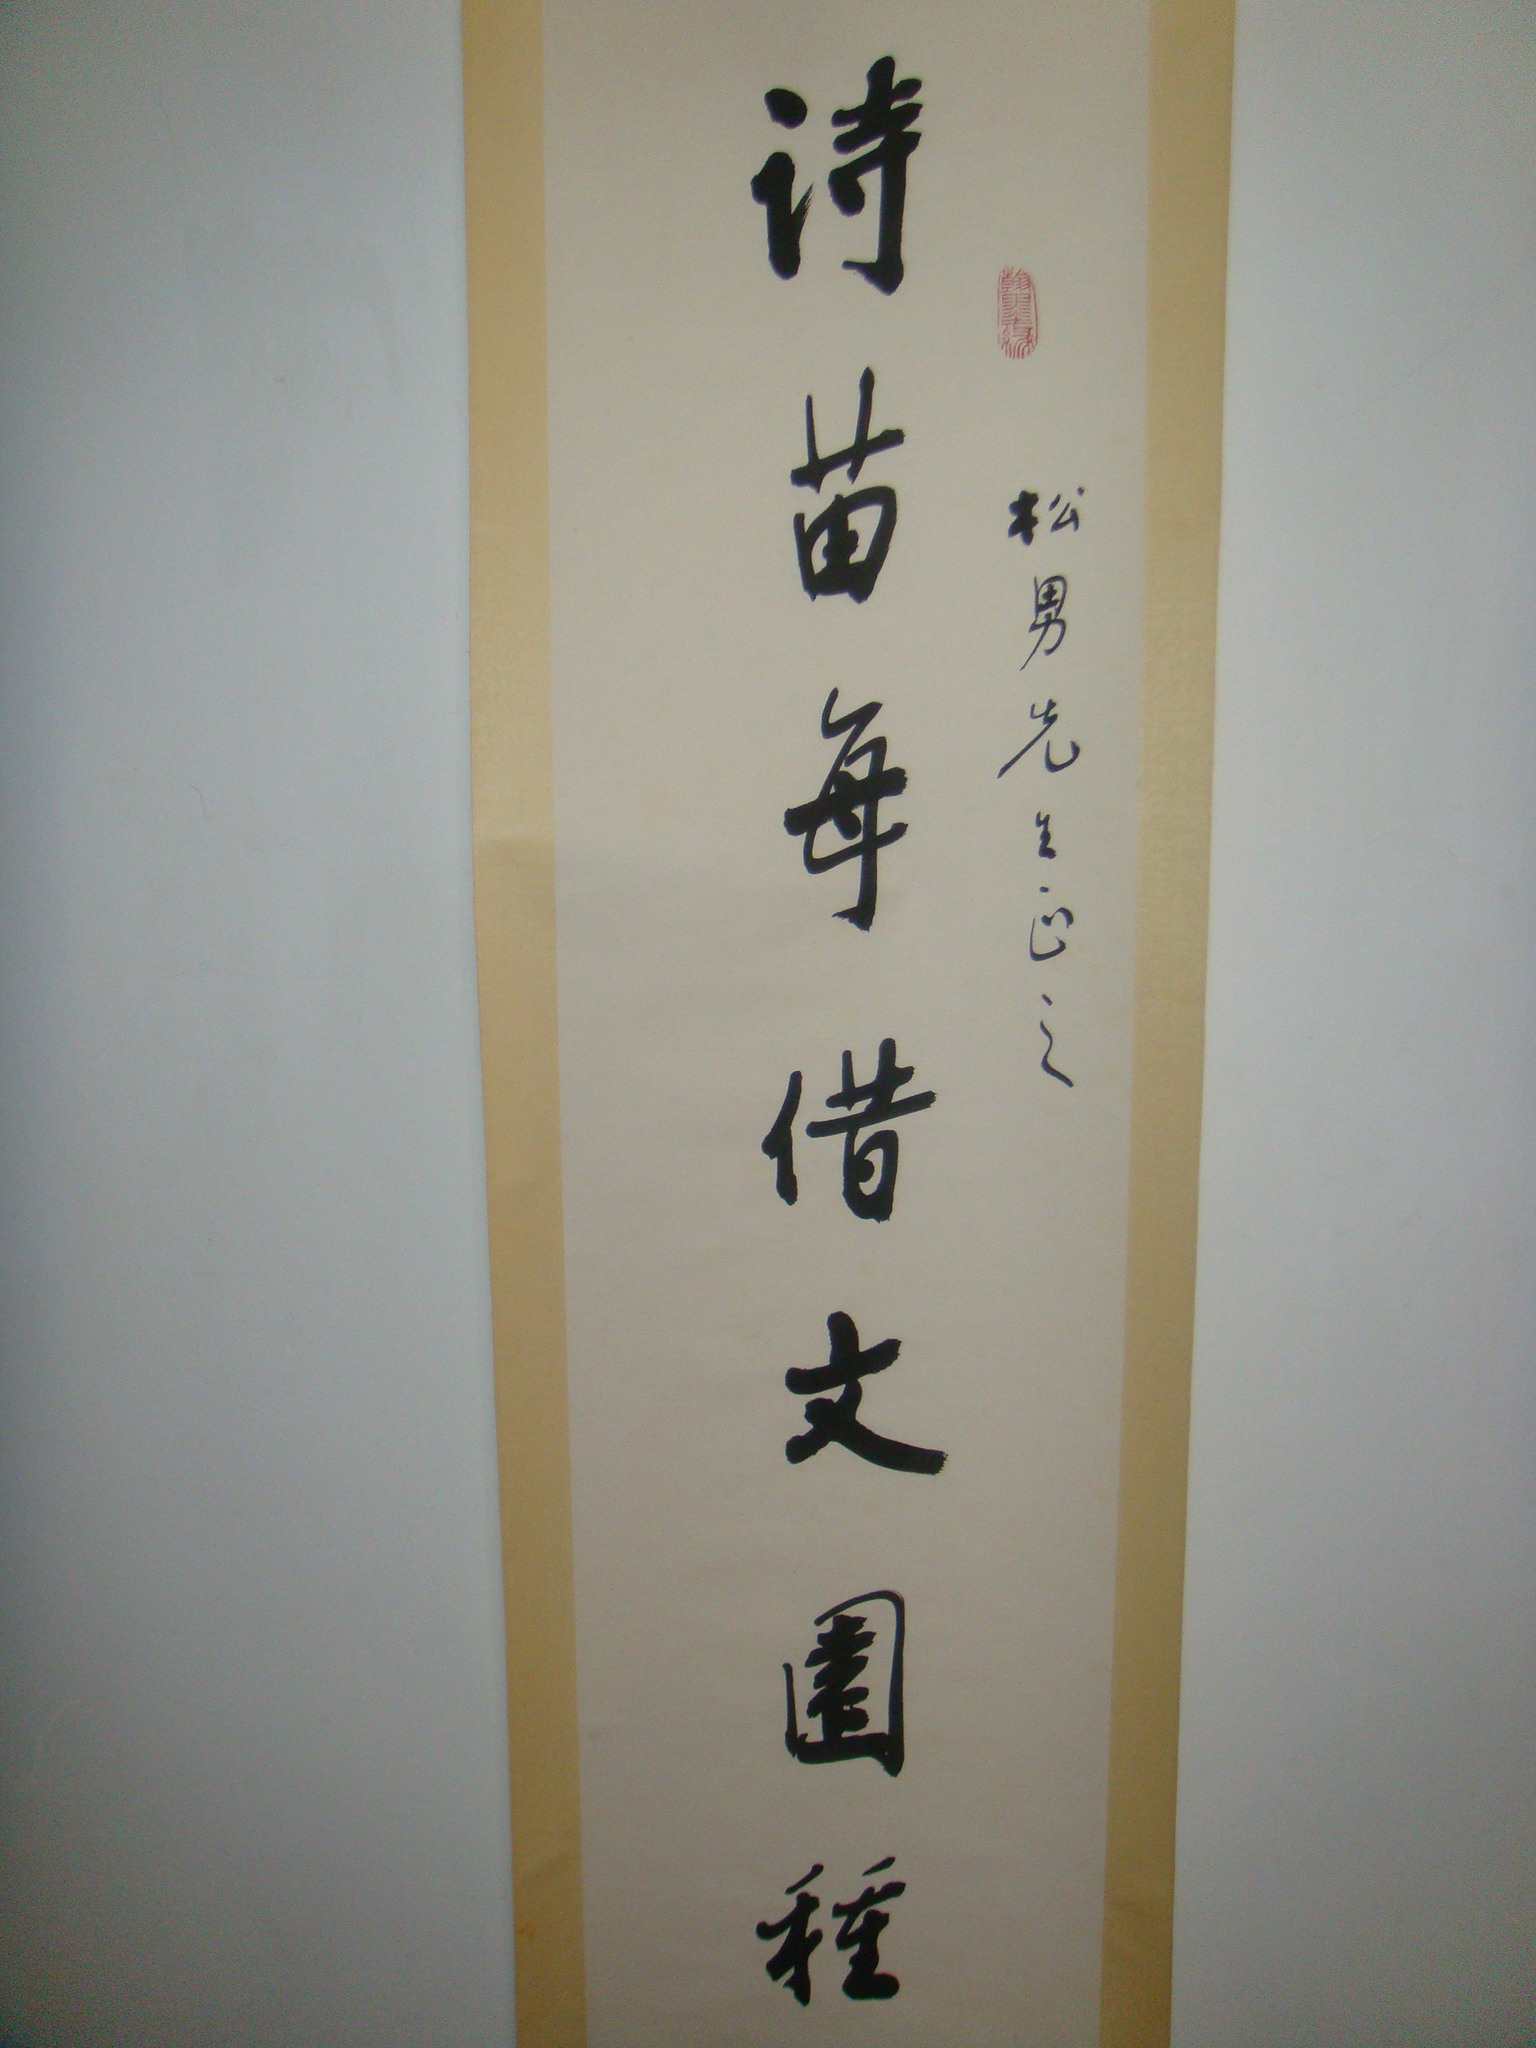 松男先生正之
詩苗每借文園種
翰墨緣